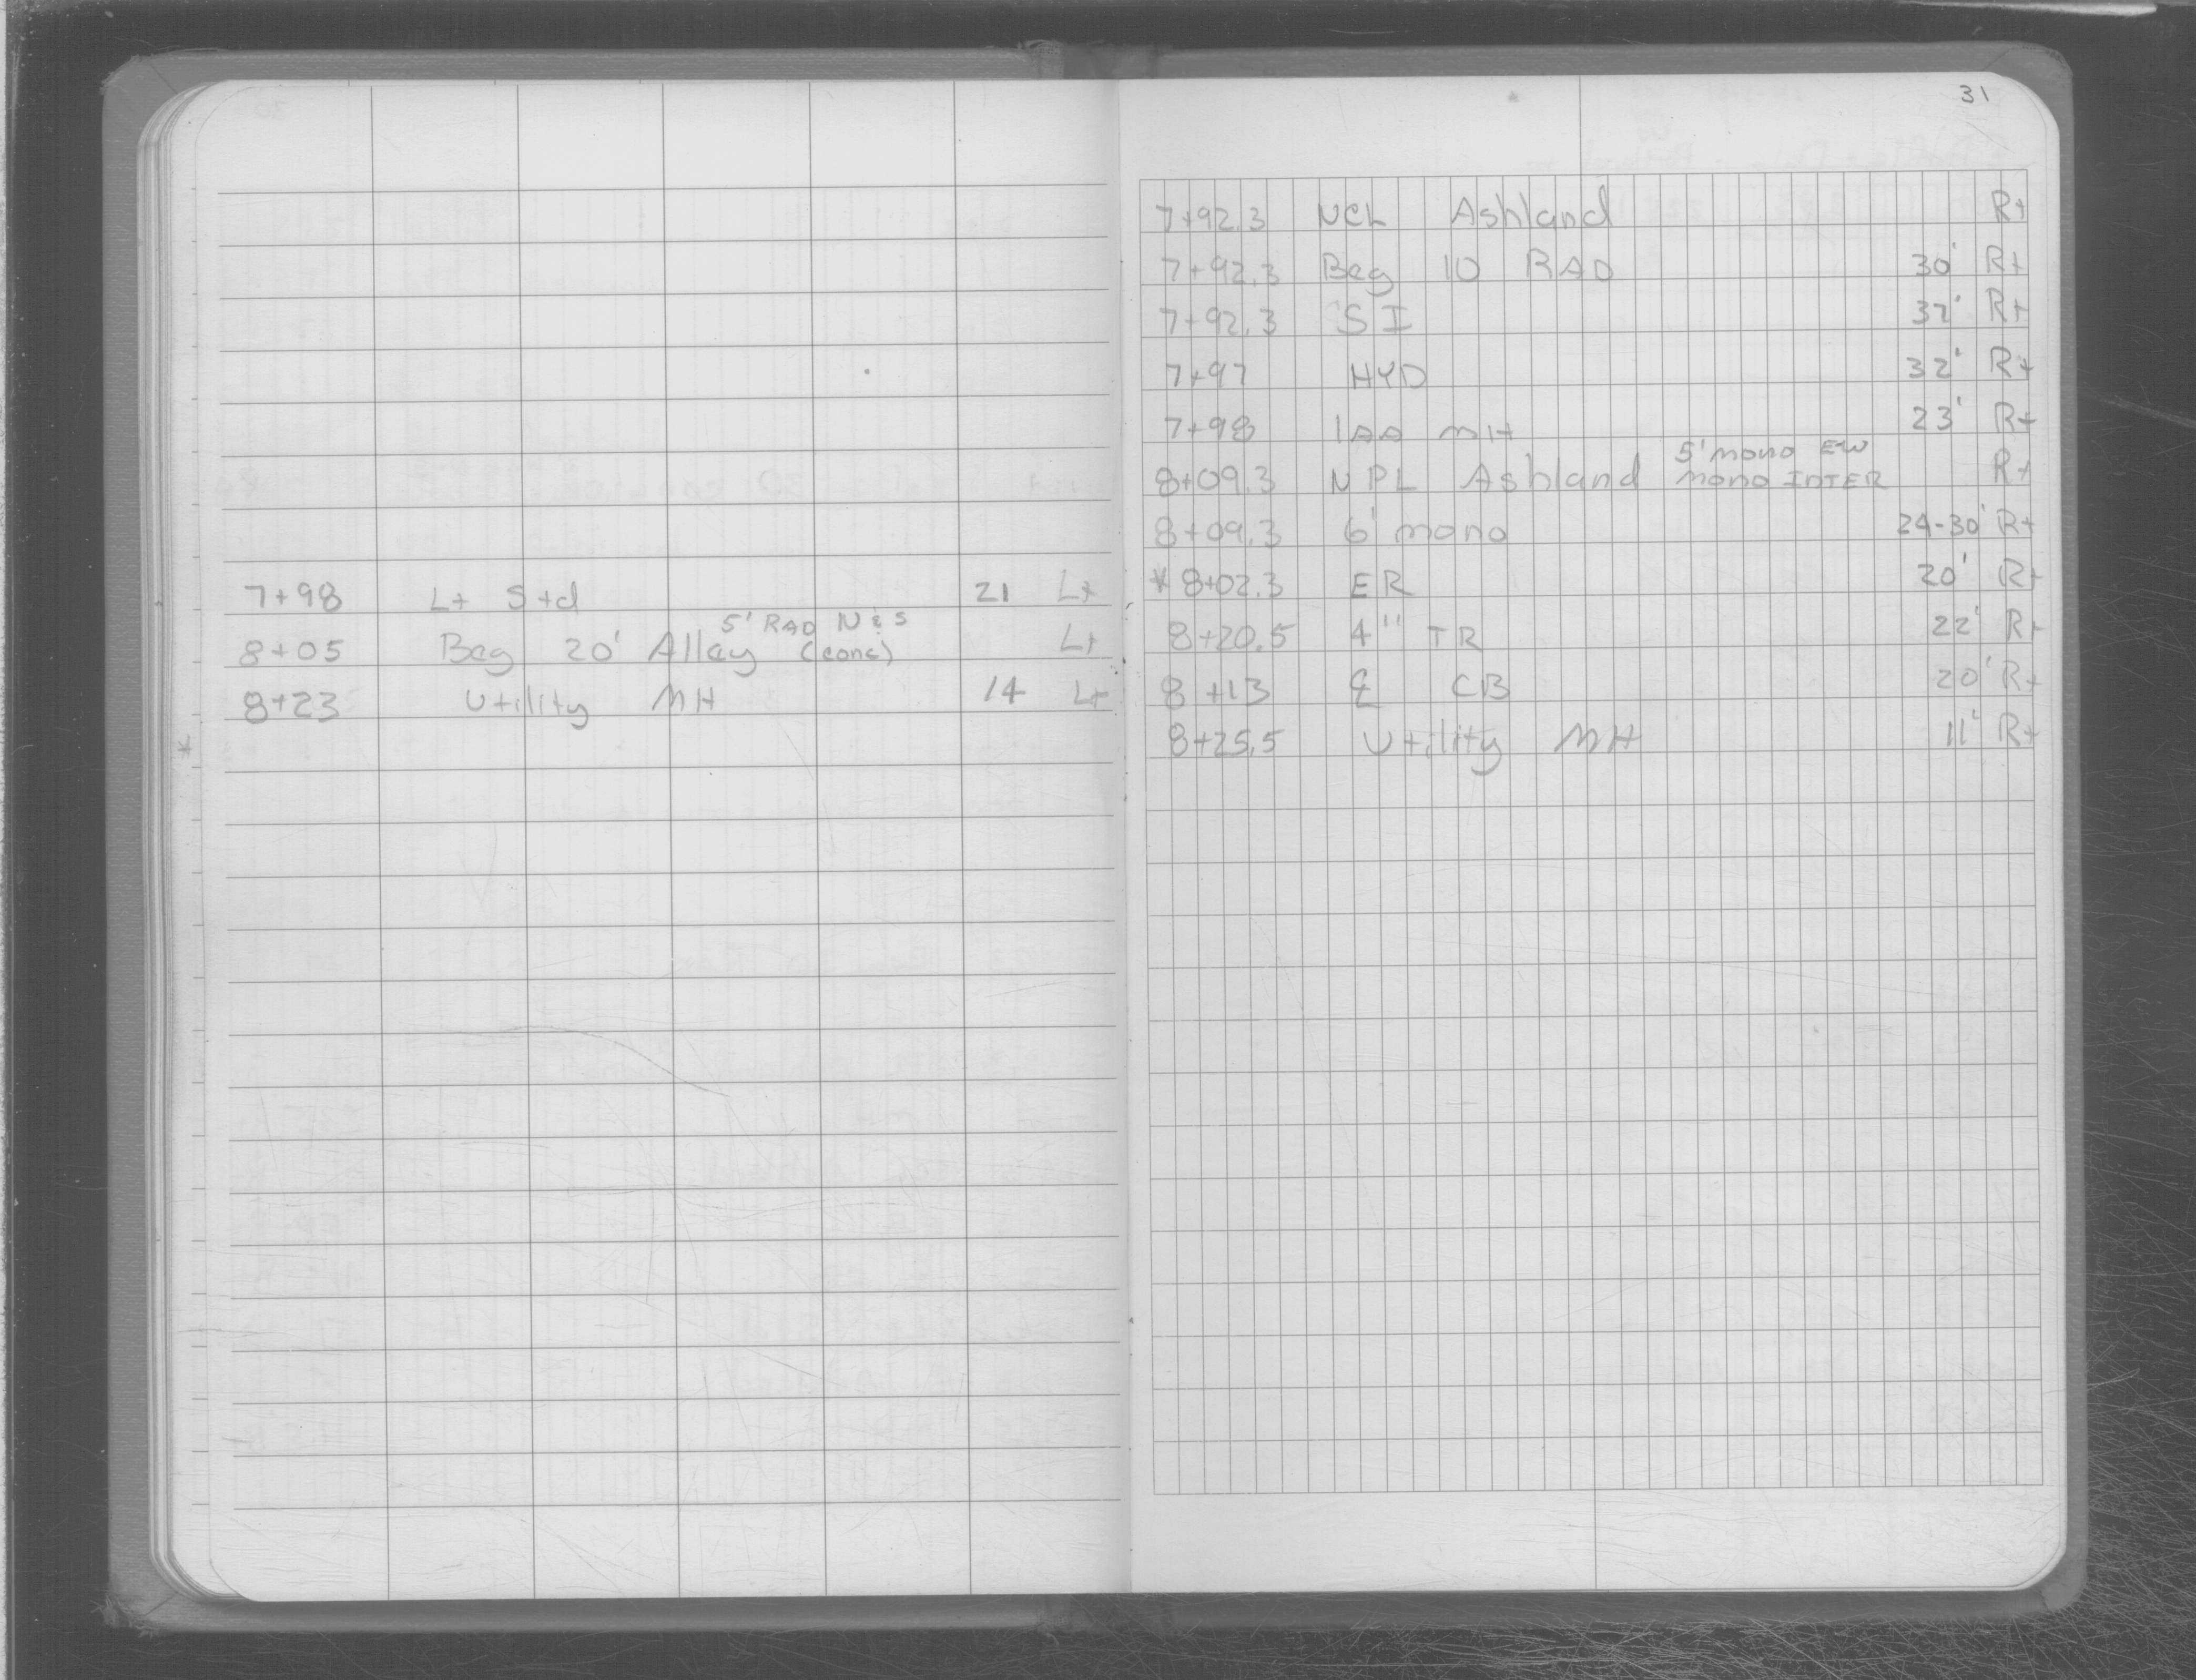 7+98 Lt Std 21 Lt
5' RAD N & S
8+05 Beg 20' Alley (conc) Lt
8+23 Utility MH 14 Lt
*
31
7+92.3 NCL Ashland Rt
7+92.3 Beg 10 RAD 30' Rt
7+92.3 SI 37' Rt
7+97 HYD 32' Rt
7+98 MH 23' Rt
5' mono EW
8+09.3 NPL Ashland mono INTER Rt
8+09.3 6' mono 24-30' Rt
* 8+02.3 ER 20' Rt
8+20.5 4" TR 22' Rt
8+13 ℄ CB 20' Rt
8+25.5 Utility MH 11' Rt